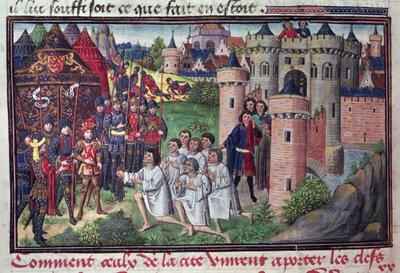 il lui souffisoit ce que fait en estoit.
Comment ceulx de la cite vinrent aporter les clefs